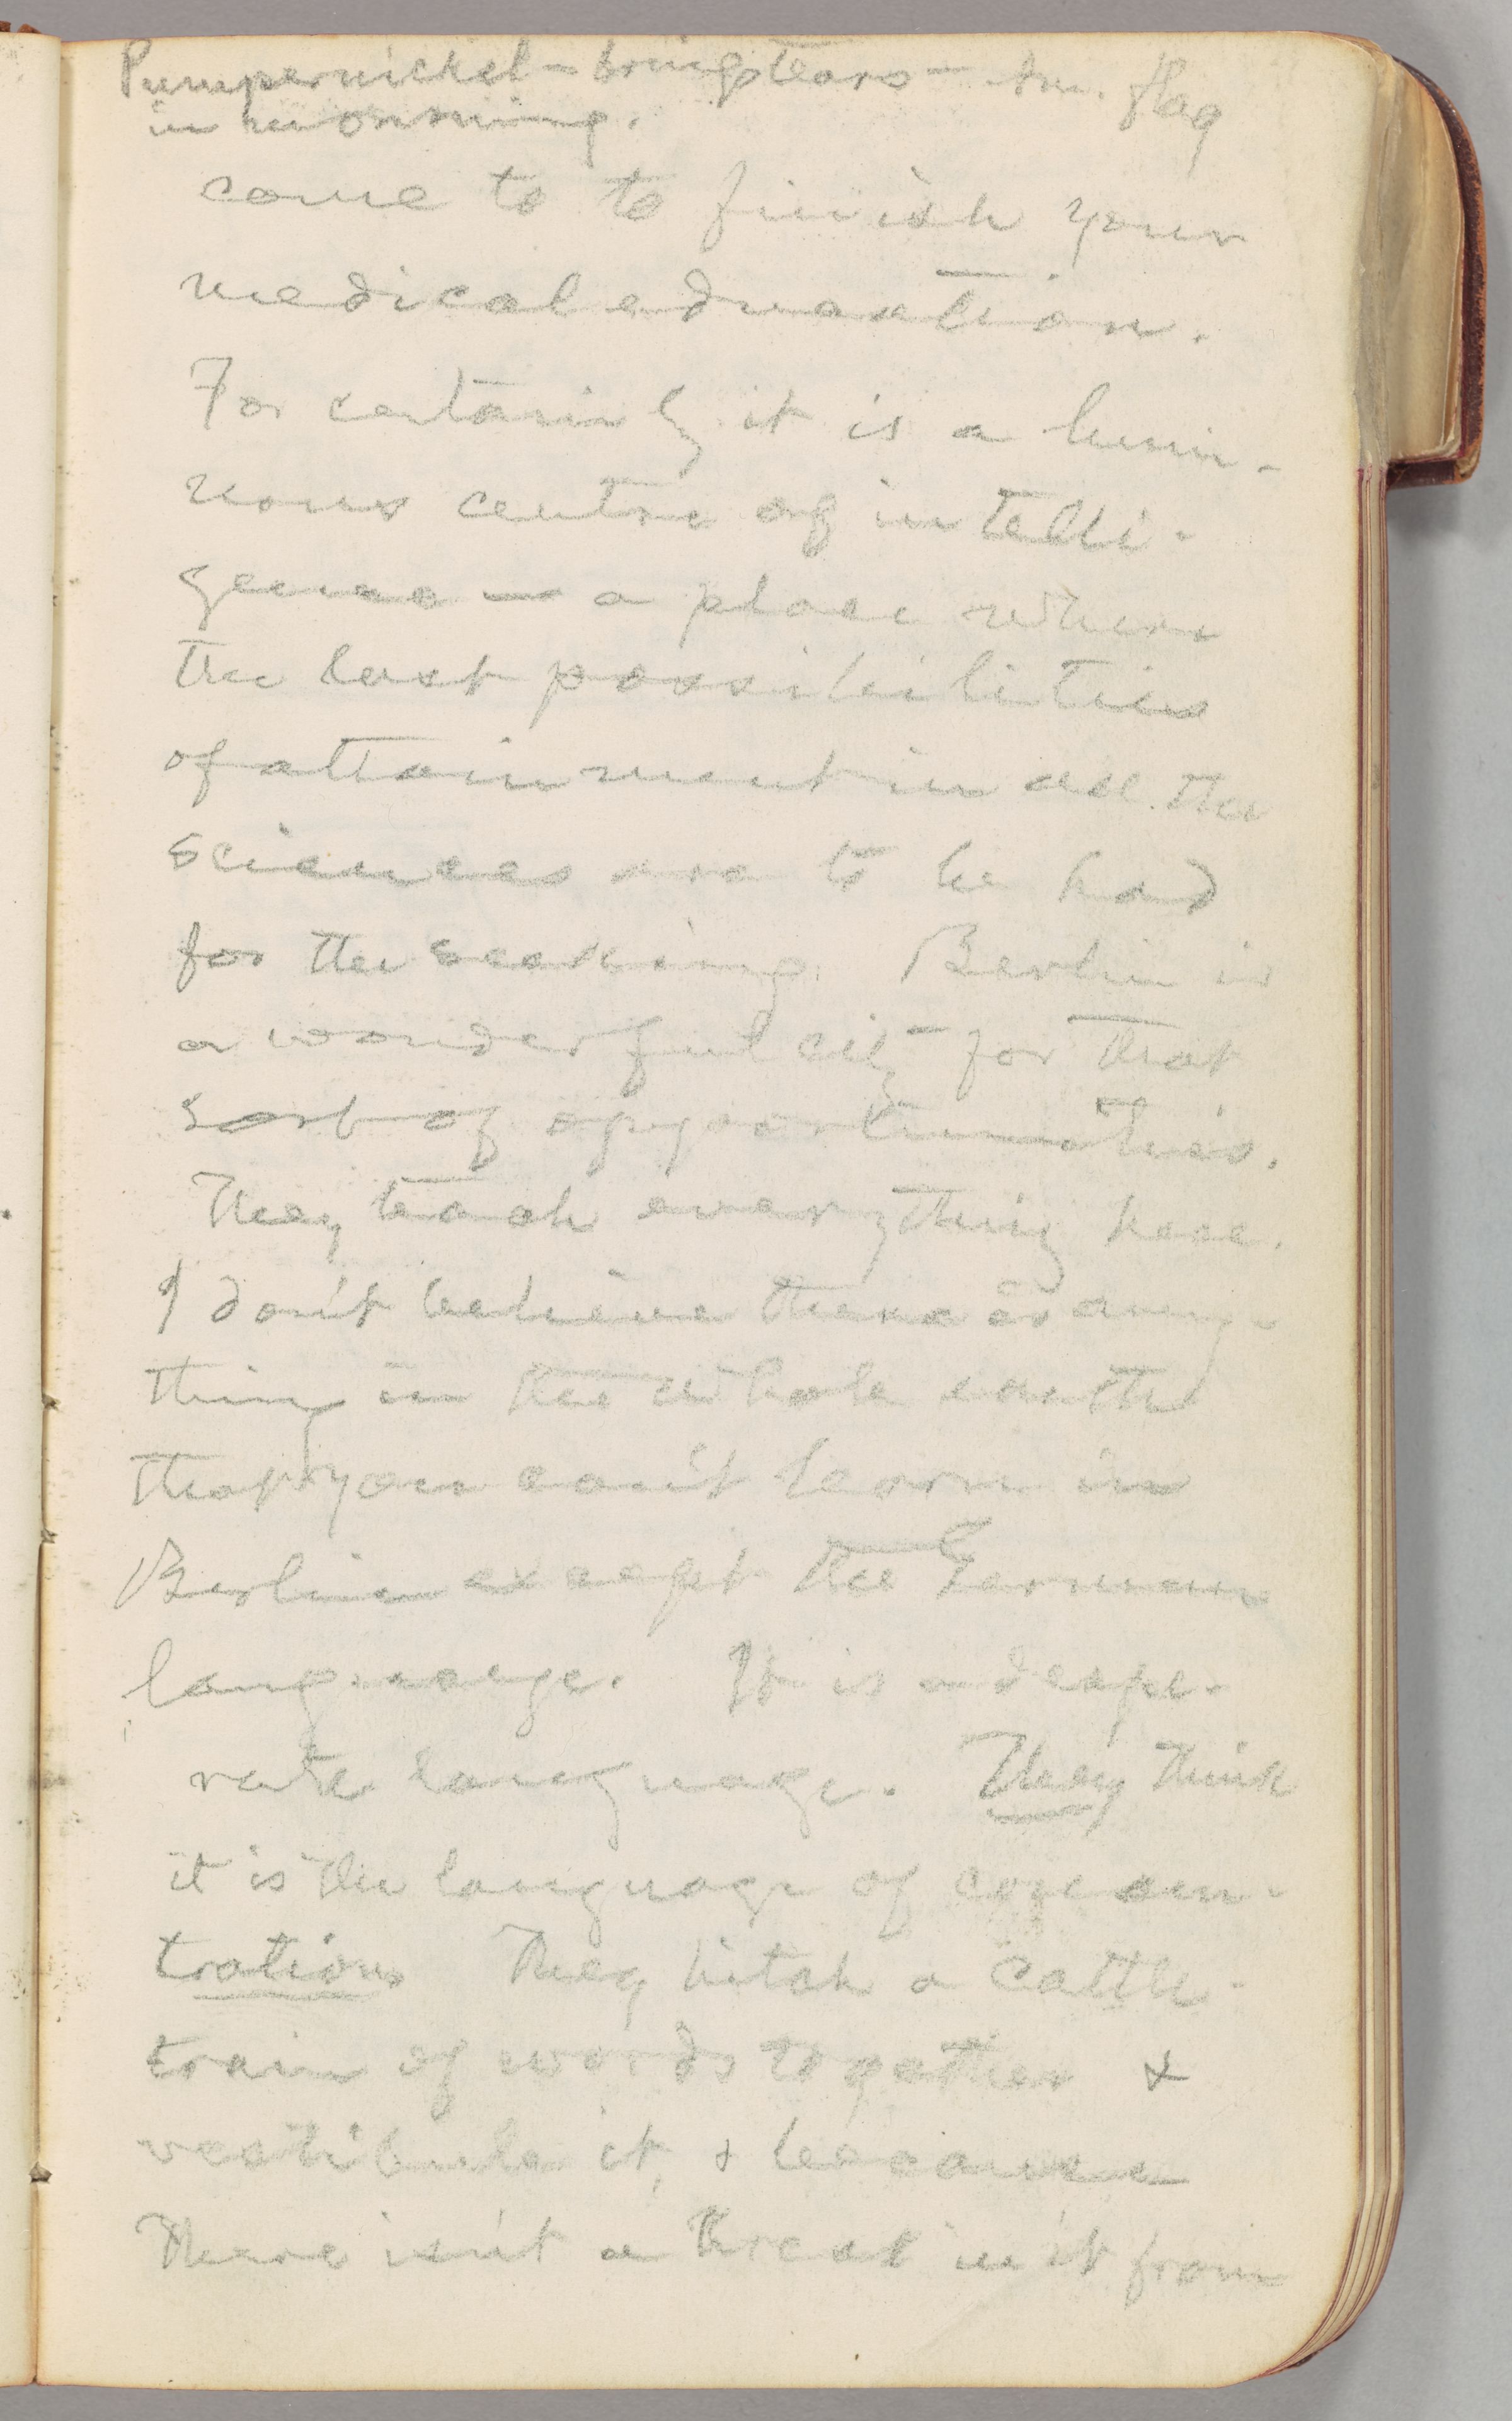 Pumpernickel – brings tears – Am. flag
in morning.
come to to finish your
medical education.
For certainly it is a lumin-
nous centre of intelli-
gence — a place where
the last possibilities
of attainment in all the
sciences are to be had
for the seeking. Berlin is
a wonderful city for that
sort of opportunities.
They teach everything here.
I don't believe there is any-
thing in the whole earth
that you can't learn in
Berlin except the German
language. It is a despe-
rate language. They think
it is the language of concen-
tration They hitch a cattle-
train of words together &
vestibule it, & because
there isn't a break in it from